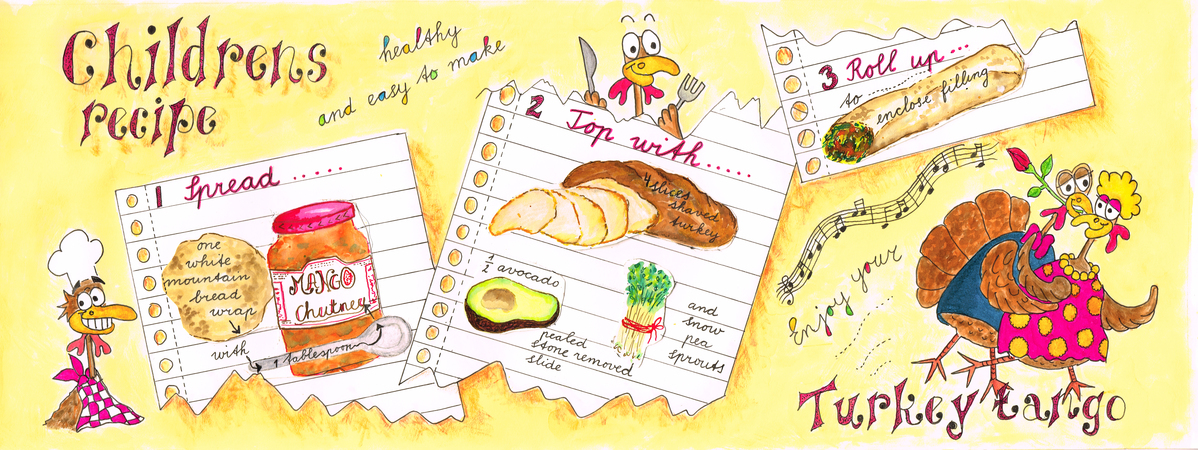 Childrens
recipe
healthy
and easy to make
1 Spread .....
one
white
mountain
bread
wrap
with
1 tablespoon
MANGO
Chutney
2 Top with....
4 slices
shaved
turkey
1/2 avocado
pealed
stone removed
slide
and
snow
pea
sprouts
3 Roll up ...
to ..........
enclose filling
Enjoy your
Turkey tango